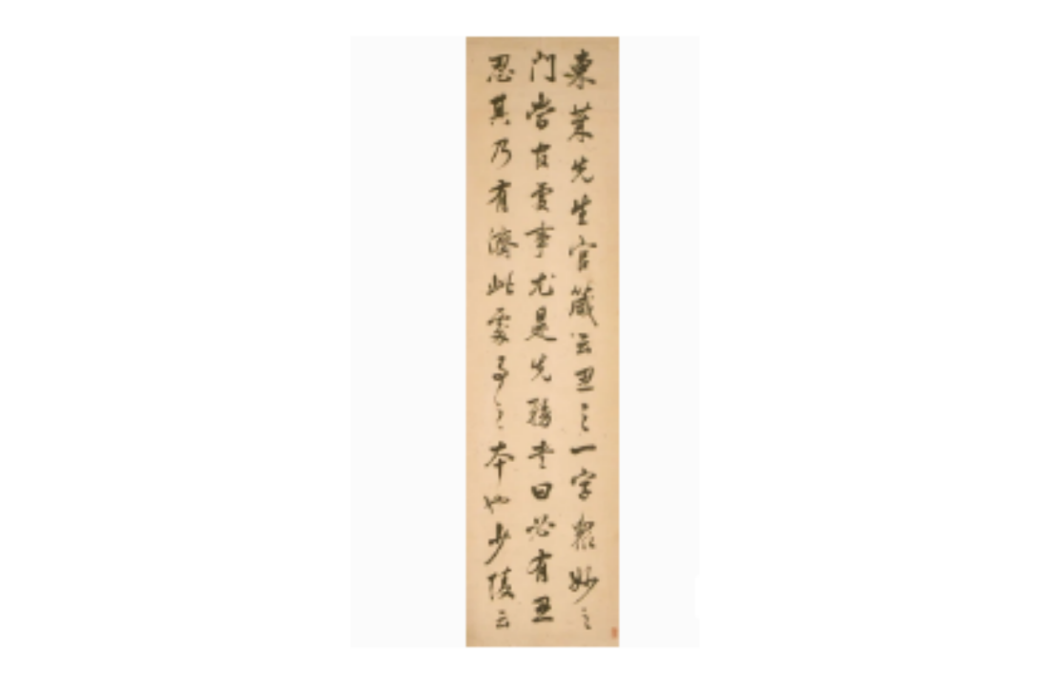 東萊先生官箴云忍之一字衆妙之
門當官處事尤是先務書曰必有忍
忍其乃有濟此處事之本也少陵云